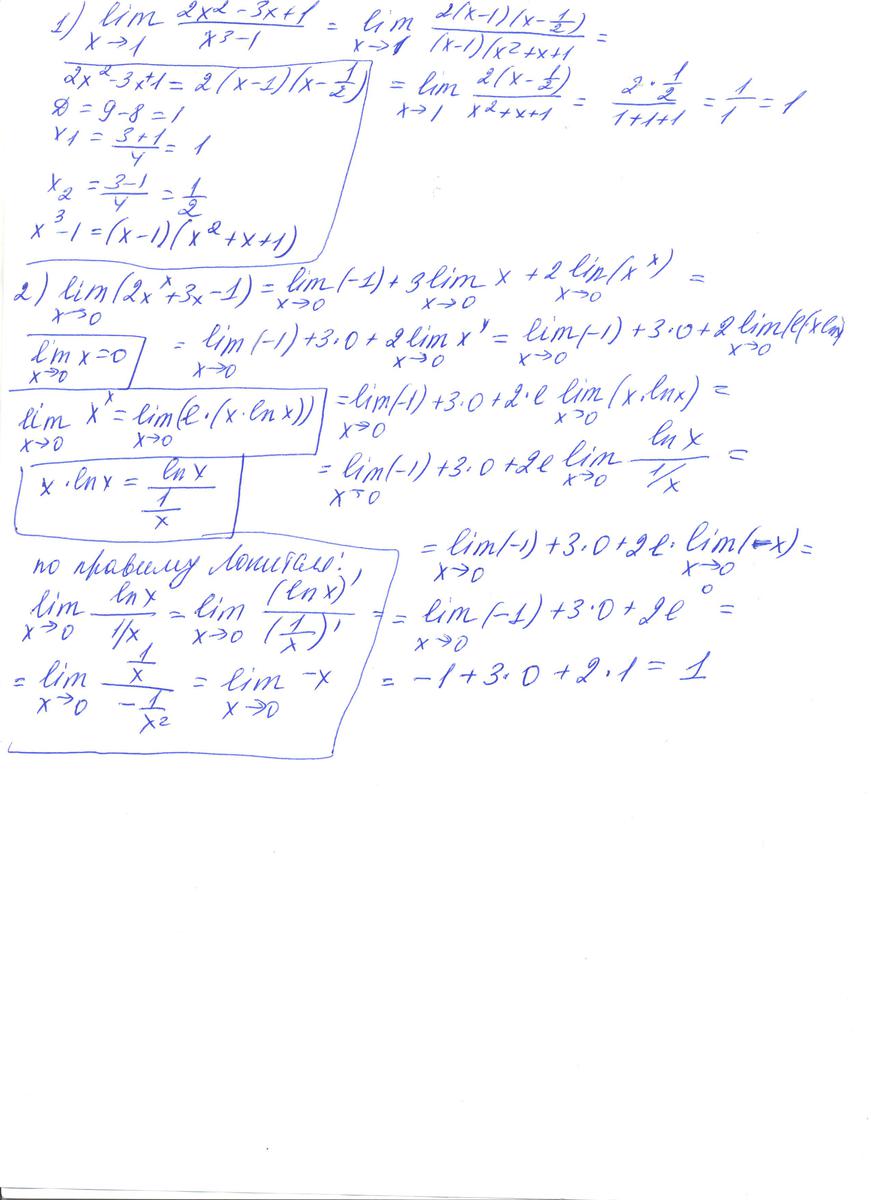 1) lim x→1 (2x² - 3x + 1)/(x³ - 1) = lim x→1 2(x-1)(x - 1/2)/((x-1)(x²+x+1) =
2x² - 3x + 1 = 2(x-1)(x - 1/2)
D = 9 - 8 = 1
x1 = (3+1)/4 = 1
x2 = (3-1)/4 = 1/2
x³ - 1 = (x-1)(x² + x + 1)
= lim x→1 2(x - 1/2)/(x²+x+1) = (2·1/2)/(1+1+1) = 1/1 = 1
2) lim x→0 (2x^x + 3x - 1) = lim x→0 (-1) + 3 lim x→0 x + 2 lim x→0 (x^x) =
lim x→0 x = 0
= lim x→0 (-1) + 3·0 + 2 lim x→0 x^x = lim x→0 (-1) + 3·0 + 2 lim x→0 (e(x ln
lim x→0 x^x = lim x→0 (e·(x·ln x))
= lim x→0 (-1) + 3·0 + 2·e lim x→0 (x·ln x) =
x·ln x = ln x/(1/x)
= lim x→0 (-1) + 3·0 + 2e lim x→0 ln x/(1/x) =
по правилу Лопиталя:
lim x→0 ln x/(1/x) = lim x→0 (ln x)'/(1/x)' =
= lim x→0 (1/x)/(-1/x²) = lim x→0 -x
= lim x→0 (-1) + 3·0 + 2e· lim x→0 (-x) =
= lim x→0 (-1) + 3·0 + 2e⁰ =
= -1 + 3·0 + 2·1 = 1